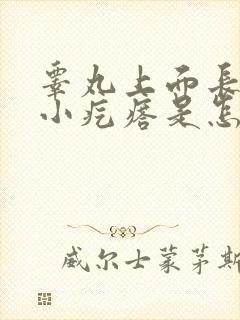 睾丸上面長
小疙瘩是怎
威尔士蒙茅斯